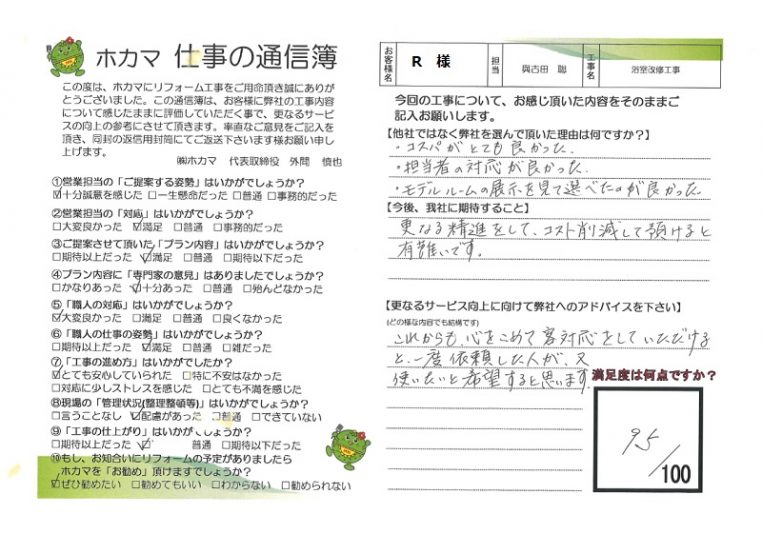 ホカマ 仕事の通信簿
この度は、ホカマにリフォーム工事をご用命頂き誠にありが
とうございました。この通信簿は、お客様に弊社の工事内容
について感じたままに評価していただく事で、更なるサービ
スの向上の参考にさせて頂きます。率直なご意見をご記入を
頂き、同封の返信用封筒にてご返送下さいます様お願い申し
上げます。
㈱ホカマ 代表取締役 外間 慎也
①営業担当の「ご提案する姿勢」はいかがでしょうか?
☑十分誠意を感じた □一生懸命だった □普通 □事務的だった
②営業担当の「対応」はいかがでしょうか?
□大変良かった ☑満足 □普通 □事務的だった
③ご提案させて頂いた「プラン内容」はいかがでしょうか?
□期待以上だった ☑満足 □普通 □期待以下だった
④プラン内容に「専門家の意見」はありましたでしょうか?
□かなりあった ☑十分あった □普通 □殆んどなかった
⑤「職人の対応」はいかがでしょうか?
☑大変良かった □満足 □普通 □良くなかった
⑥「職人の仕事の姿勢」はいかがでしょうか?
□期待以上だった ☑満足 □普通 □雑だった
⑦「工事の進め方」はいかがでしたか?
☑とても安心していられた □特に不安はなかった
□対応に少しストレスを感じた □とても不満を感じた
⑧現場の「管理状況(整理整頓等)」はいかがでしょうか?
□言うことなし ☑配慮があった □普通 □できていない
⑨「工事の仕上がり」はいかがでしょうか?
□期待以上だった ☑ 普通 □期待以下だった
⑩もし、お知合いにリフォームの予定がありましたら
ホカマを「お勧め」頂けますでしょうか?
☑ぜひ勧めたい □勧めてもいい □わからない □勧められない
お客様名 R 様 担当 與古田 聡 工事名 浴室改修工事
今回の工事について、お感じ頂いた内容をそのままご
記入お願いします。
【他社ではなく弊社を選んで頂いた理由は何ですか?】
・コスパがとても良かった.
・担当者の対応が良かった.
・モデルルームの展示を見て選べたのが良かった
【今後、我社に期待すること】
更なる精進をして、コスト削減して頂けると
有難いです。
【更なるサービス向上に向けて弊社へのアドバイスを下さい】
(どの様な内容でも結構です)
これからも心をこめて客対応をしていただける
と、一度依頼した人が、又
使いたいと希望すると思います.
満足度は何点ですか?
95/100